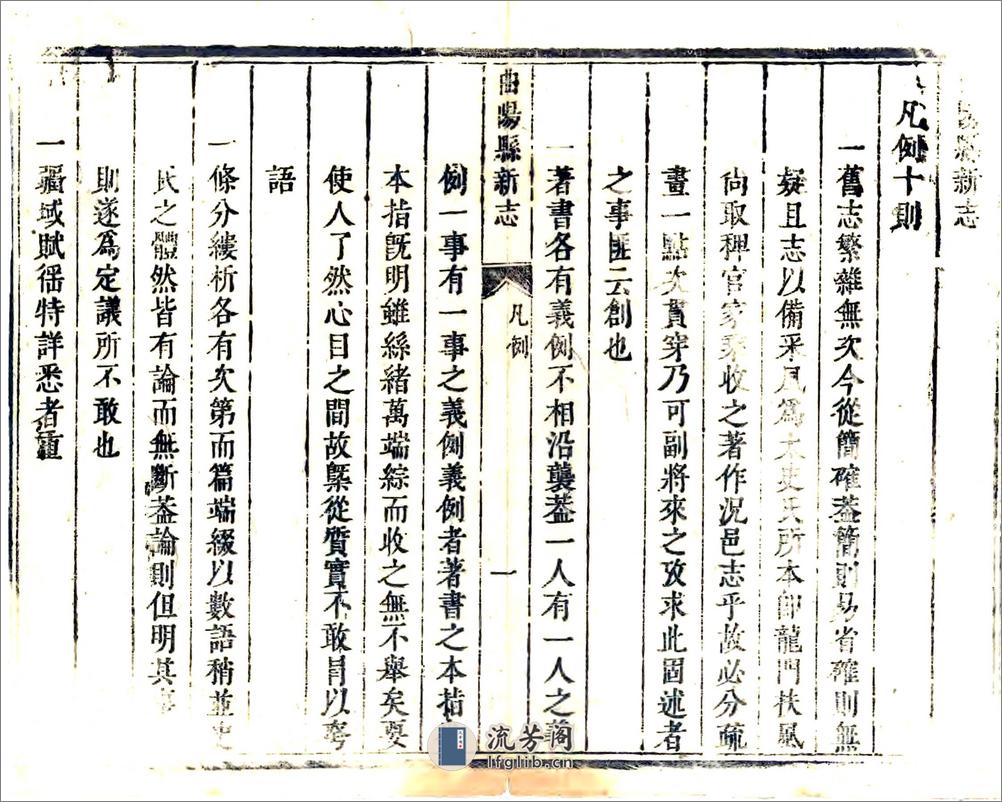 縣新志
凡例十則
一舊志繁雜無次今從簡確葢簡則易省確則無
疑且志以備采風爲太史氏所本卽龍門扶風
尙取稗官家乘收之著作況邑志乎故必分疏
畫一點次貫穿乃可副將來之攷求此固述者
之事匪云創也
一著書各有義例不相沿襲葢一人有一人之義
曲陽縣新志
凡例
一
例一事有一事之義例義例者著書之本指
本指旣明雖絲緒萬端綜而收之無不舉矣要
使人了然心目之間故槩從質實不敢冐以夸
語
一條分縷析各有次第而篇端綴以數語稍並史
氏之體然皆有論而無斷葢論則但明其事
則遂爲定議所不敢也
一疆域賦徭特詳悉者重
流芳阁
lfglib.cn